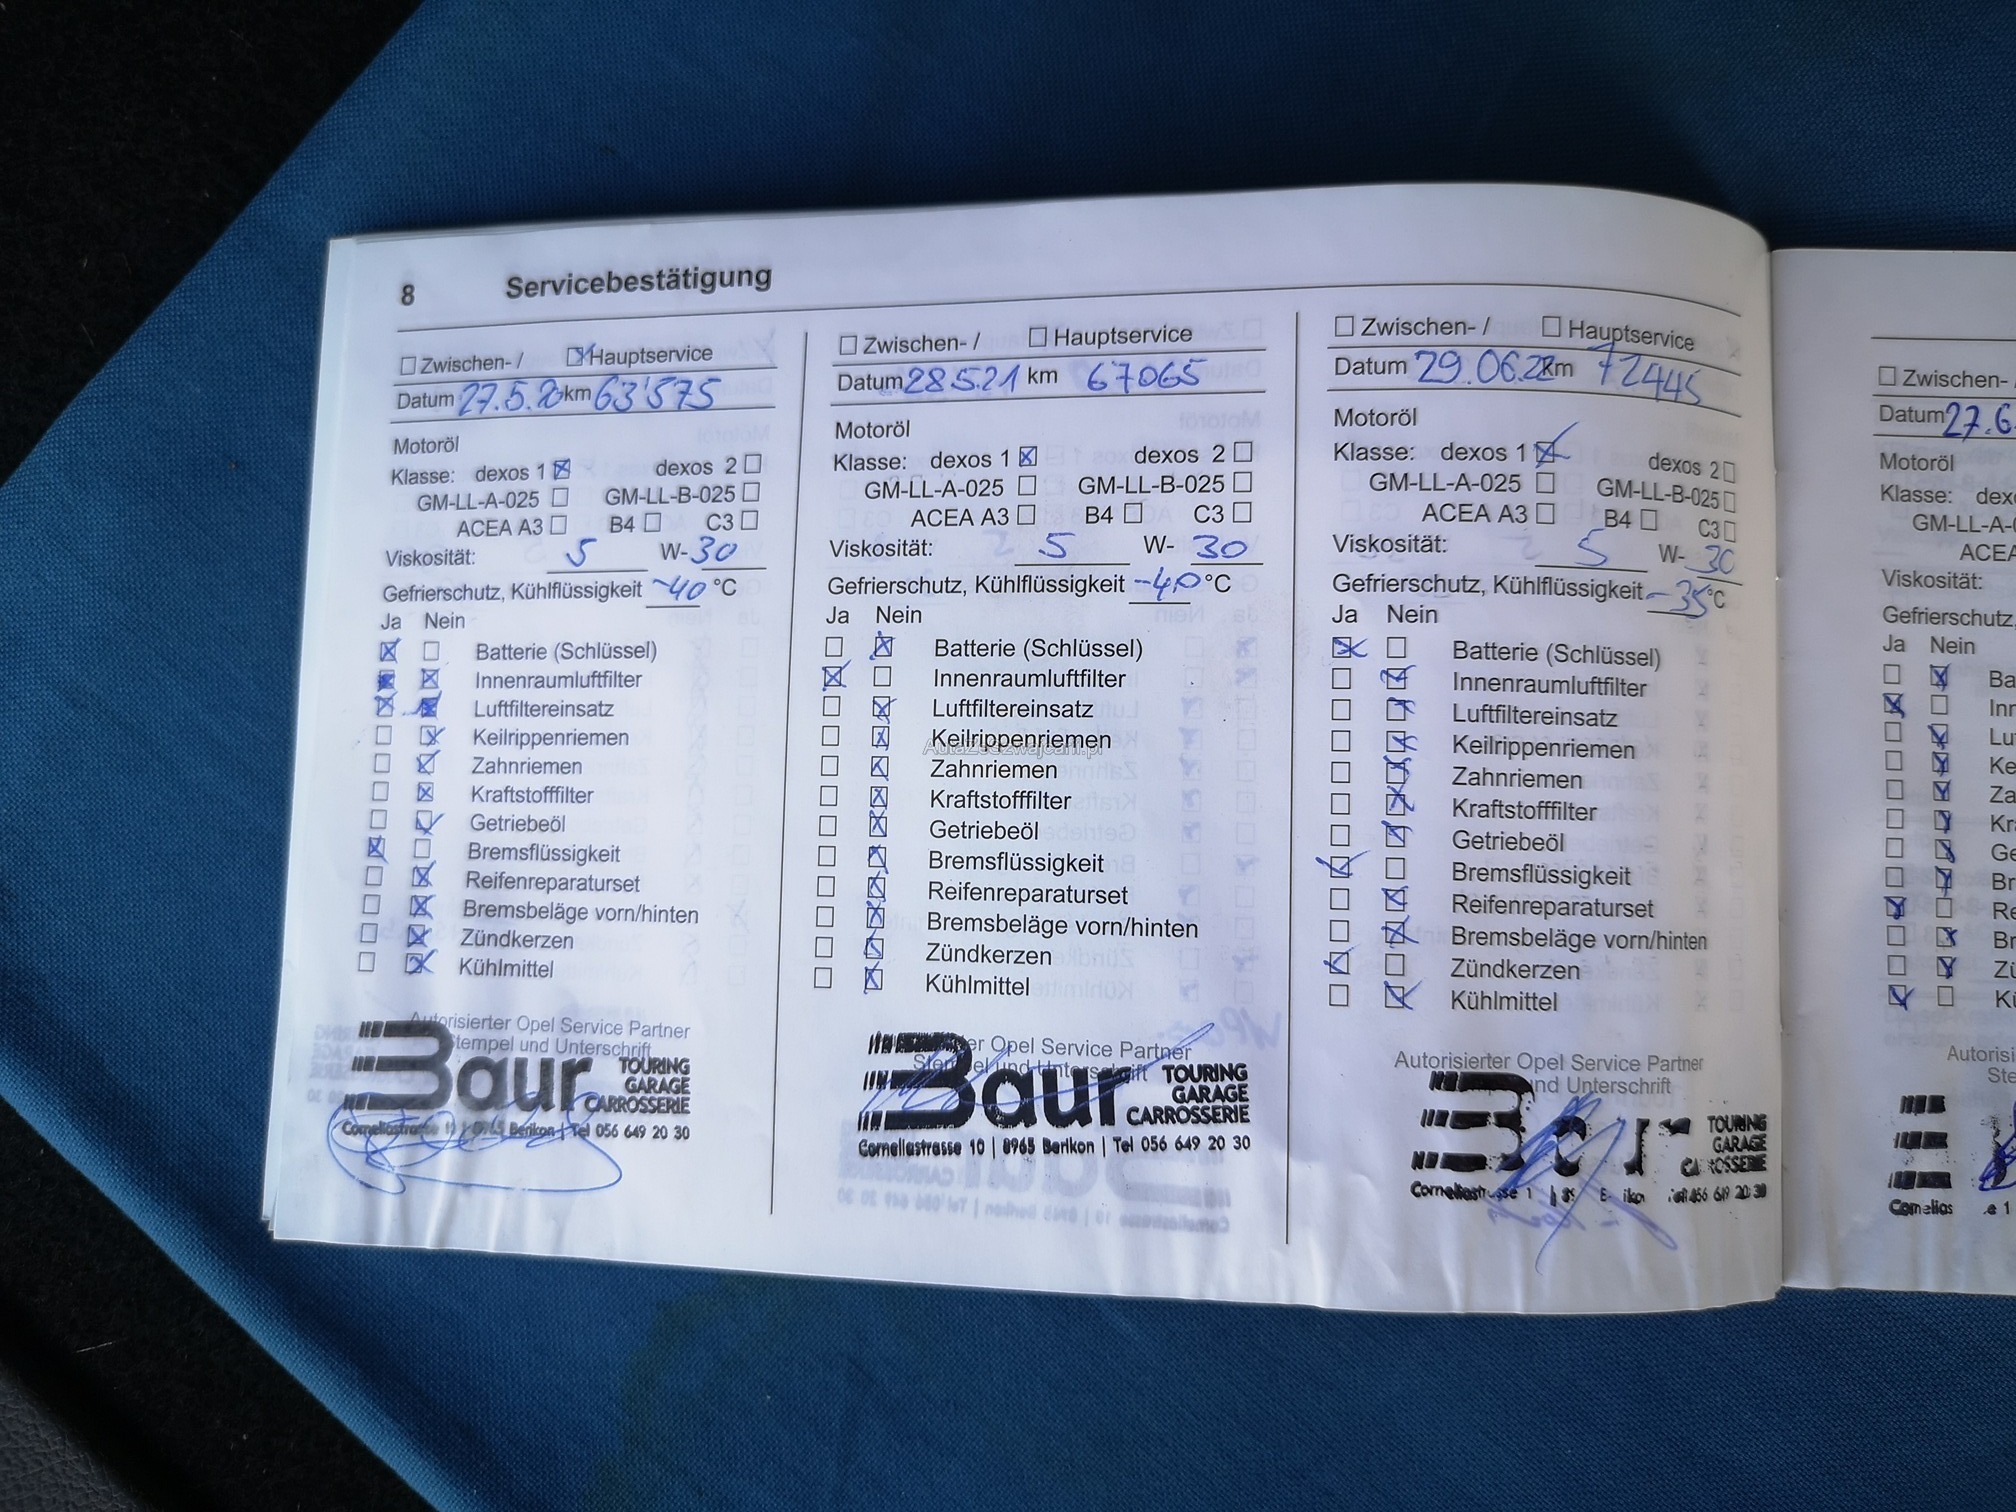 8 Servicebestätigung
Zwischen- / Hauptservice
Datum 27.5.20 km 63'575
Motoröl
Klasse: dexos 1 dexos 2
GM-LL-A-025 GM-LL-B-025
ACEA A3 B4 C3
Viskosität: 5 W- 30
Gefrierschutz, Kühlflüssigkeit -40 °C
Ja Nein
Batterie (Schlüssel)
Innenraumluftfilter
Luftfiltereinsatz
Keilrippenriemen
Zahnriemen
Kraftstofffilter
Getriebeöl
Bremsflüssigkeit
Reifenreparaturset
Bremsbeläge vorn/hinten
Zündkerzen
Kühlmittel
Autorisierter Opel Service Partner
Stempel und Unterschrift
Baur TOURING
GARAGE
CARROSSERIE
Corneliastrasse 10 | 8965 Berikon | Tel 056 649 20 30
Zwischen- / Hauptservice
Datum 28.5.21 km 67065
Motoröl
Klasse: dexos 1 dexos 2
GM-LL-A-025 GM-LL-B-025
ACEA A3 B4 C3
Viskosität: 5 W- 30
Gefrierschutz, Kühlflüssigkeit -40 °C
Ja Nein
Batterie (Schlüssel)
Innenraumluftfilter
Luftfiltereinsatz
Keilrippenriemen
AutaZeSzwajcarii.pl
Zahnriemen
Kraftstofffilter
Getriebeöl
Bremsflüssigkeit
Reifenreparaturset
Bremsbeläge vorn/hinten
Zündkerzen
Kühlmittel
er Opel Service Partner
Stempel und Unterschrift
Baur TOURING
GARAGE
CARROSSERIE
Corneliastrasse 10 | 8965 Berikon | Tel 056 649 20 30
Zwischen- / Hauptservice
Datum 29.06.22 km 72445
Motoröl
Klasse: dexos 1 dexos 2
GM-LL-A-025 GM-LL-B-025
ACEA A3 B4 C3
Viskosität: 5 W- 30
Gefrierschutz, Kühlflüssigkeit -35 °C
Ja Nein
Batterie (Schlüssel)
Innenraumluftfilter
Luftfiltereinsatz
Keilrippenriemen
Zahnriemen
Kraftstofffilter
Getriebeöl
Bremsflüssigkeit
Reifenreparaturset
Bremsbeläge vorn/hinten
Zündkerzen
Kühlmittel
Autorisierter Opel Service Partner
und Unterschrift
Baur TOURING
GARAGE
CARROSSERIE
Corneliastrasse 1 656 649 20 30
Zwischen- /
Datum 27.6
Motoröl
Klasse: dex
GM-LL-A-0
ACEA
Viskosität:
Gefrierschutz,
Ja Nein
Ba
Inn
Lu
Ke
Za
Kr
Ge
Br
Re
Br
Zü
Kü
Autoris
Ste
Cornelias